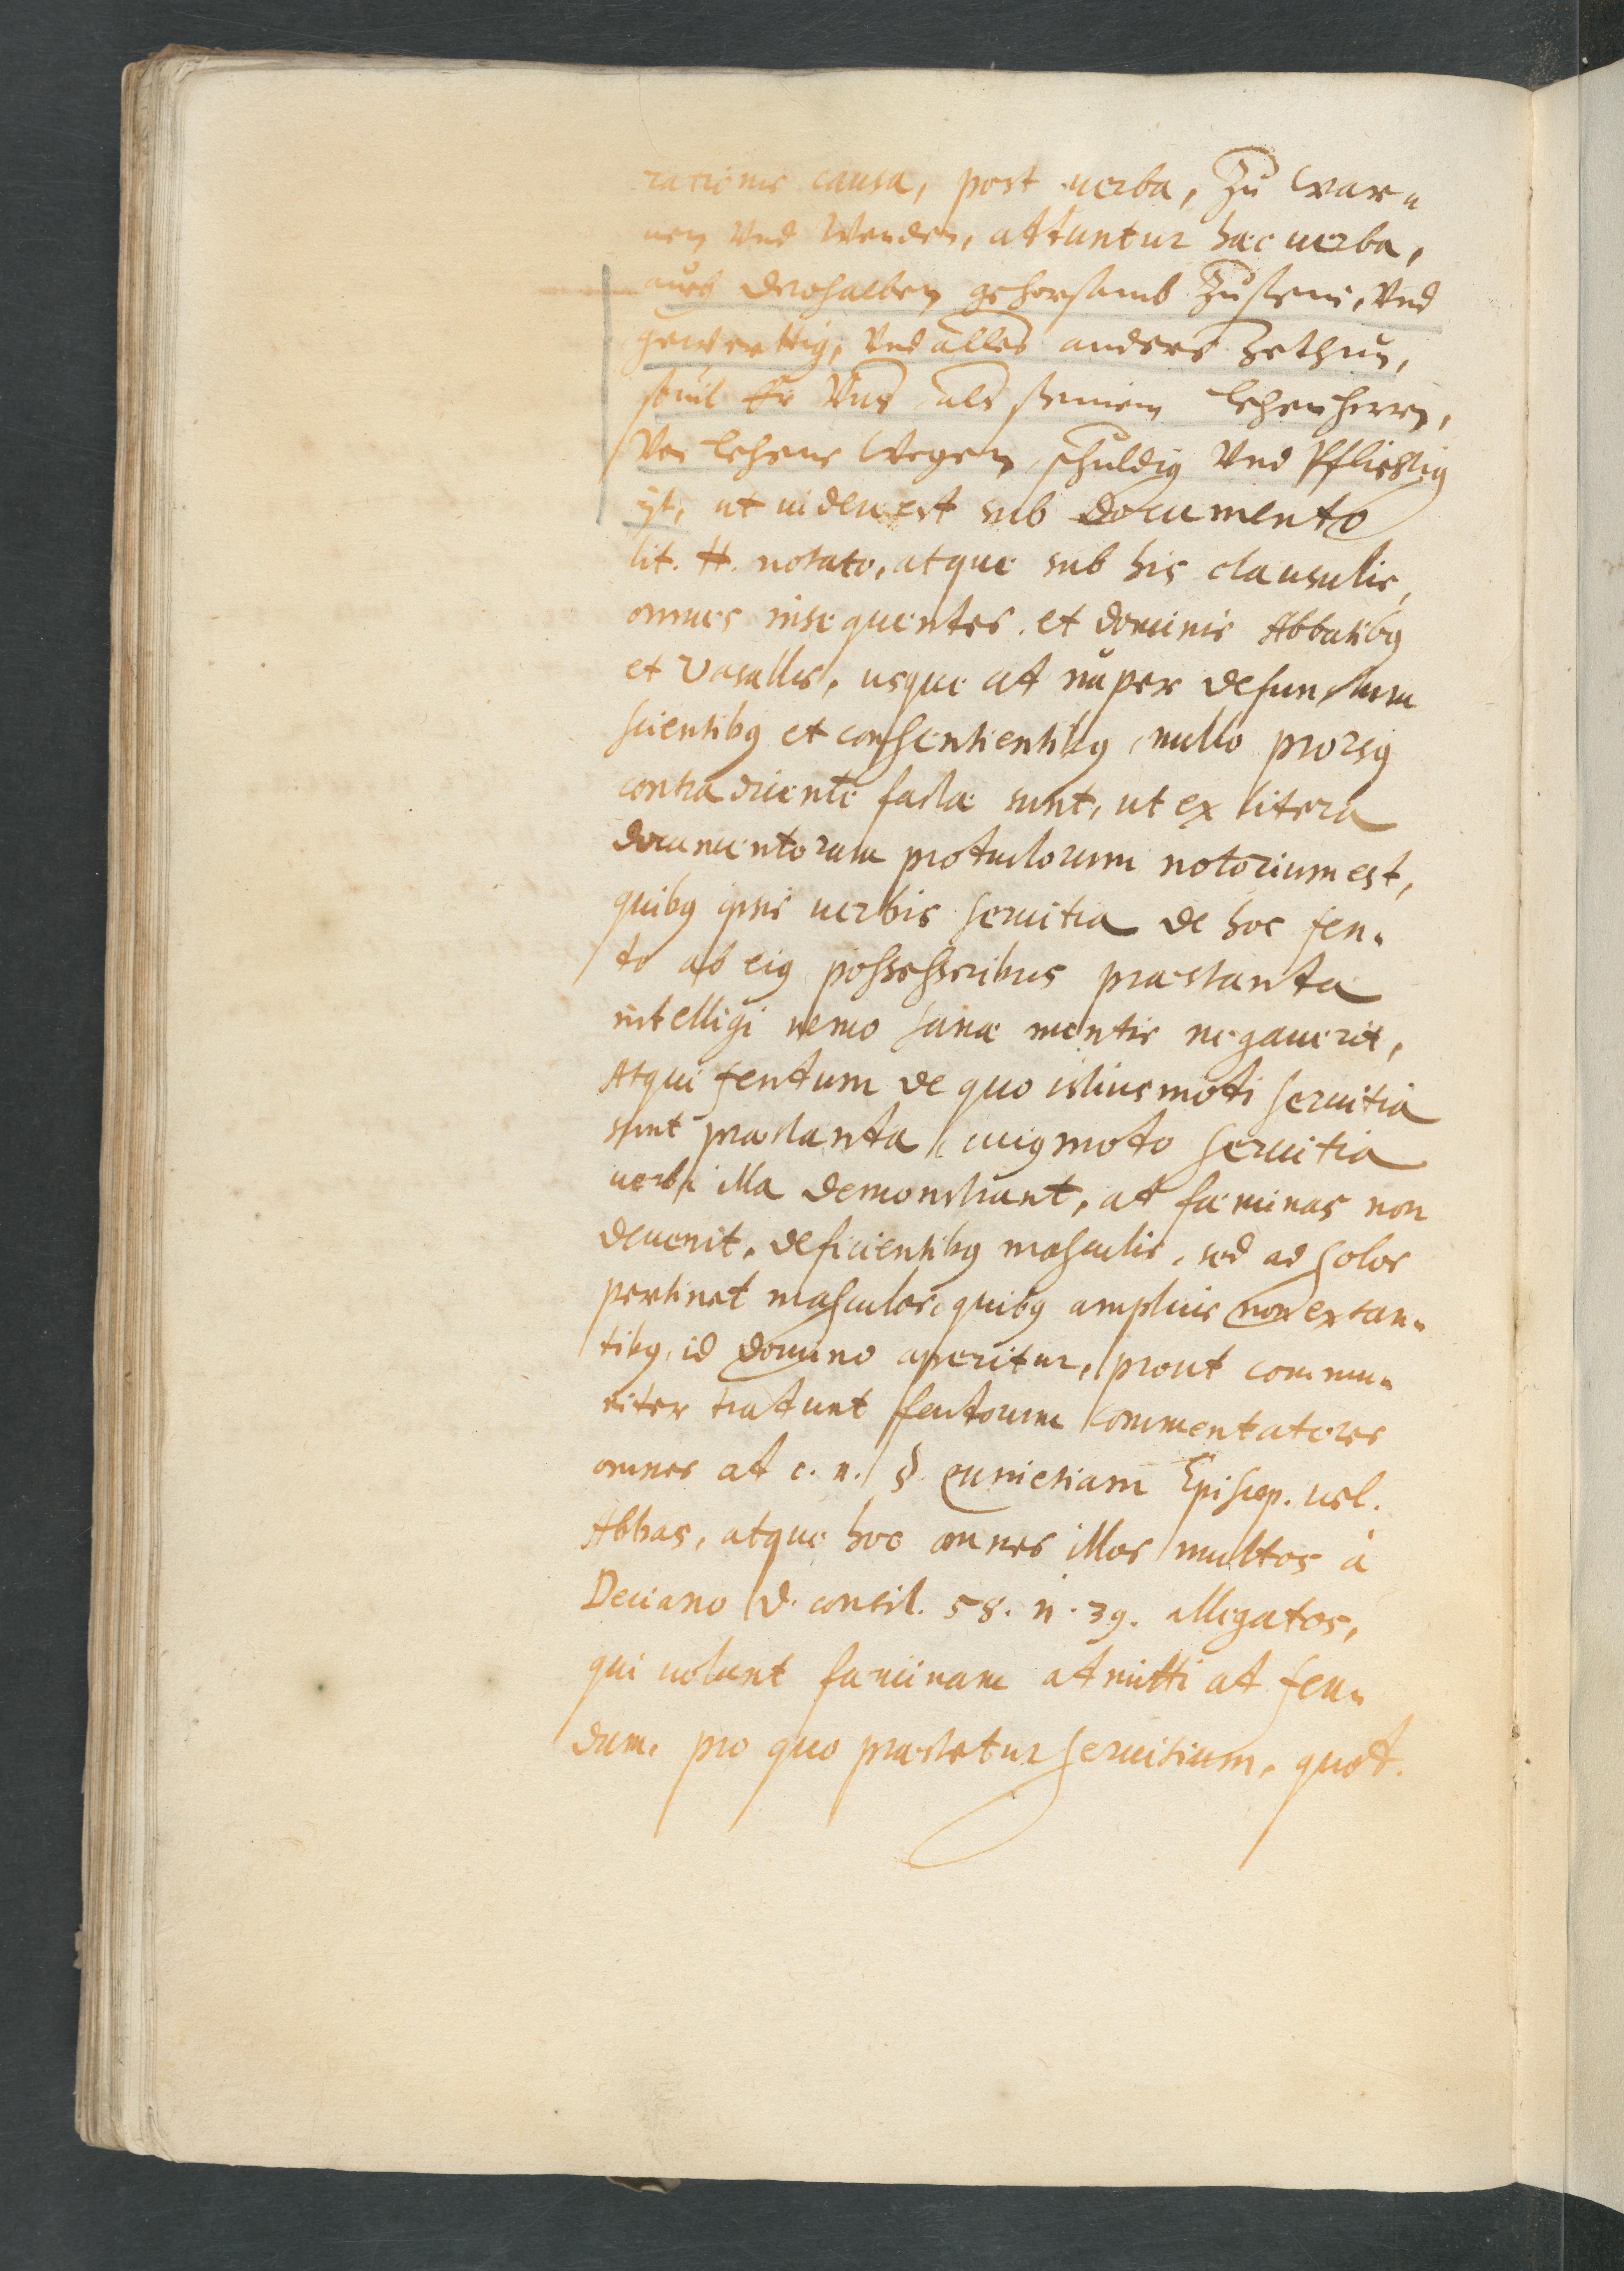 rationis causa, post uerba, Zu war„
nen und wenden, attuntur hæc uerba,
auch derohalben gehorsamb zusein, und
gewerttig, und alles anders zethun,
souil Er uns als seinem Lehenherrn,
von Lehens wegen schuldig und pflichtig
ist, ut uidere est sub documento
lit. H. notato, atque sub his clausulis,
omnes insequentes et dominis Abbatibus
et vasallis, usque at nuper defunctum
scientibus et consentientibus, nullo prorsus
contradicente factæ sunt, ut ex litera
documentorum protuctorum notorium est,
quibus ipsis uerbis seruitia de hoc feu„
to ab eius possessoribus præstanta
intelligi nemo sanæ mentis negauerit,
Atqui feutum de quo istiusmoti seruitia
sunt præstanta, cuiusmoto seruitia
uerba illa demonstrant, at fæminas non
deuenit, deficientibus masculis, sed ad solos
pertinet masculos, quibus amplius non extan„
tibus, id domino aperitur, prout commu„
niter tratunt feutorum commentatores
omnes at c. n. § quinetiam Episcop. uel.
Abbas, atque hoc omnes illos multos à
Deciano d. consil. 58. n. 39. allegatos,
qui uolunt fæminam atmitti at feu„
dum, pro quo præstetur seruitium, quot.